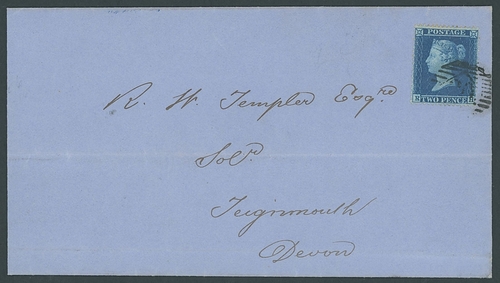 POSTAGE
TWO PENCE
R. W. Templer Esqre
Solr
Teignmouth
Devon